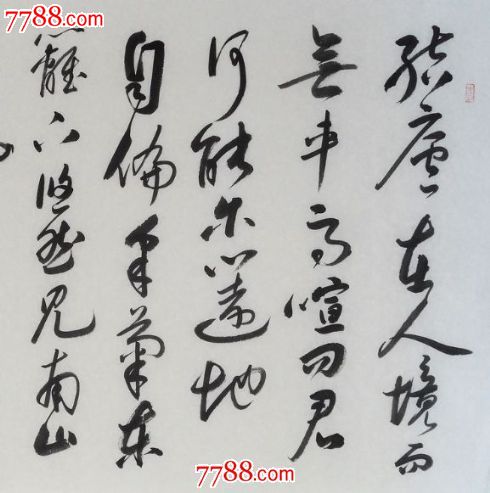 7788.com
7788.com
結廬在人境而
無車馬喧問君
何能尔心遠地
自偏采菊東
籬下悠然見南山
7788.com